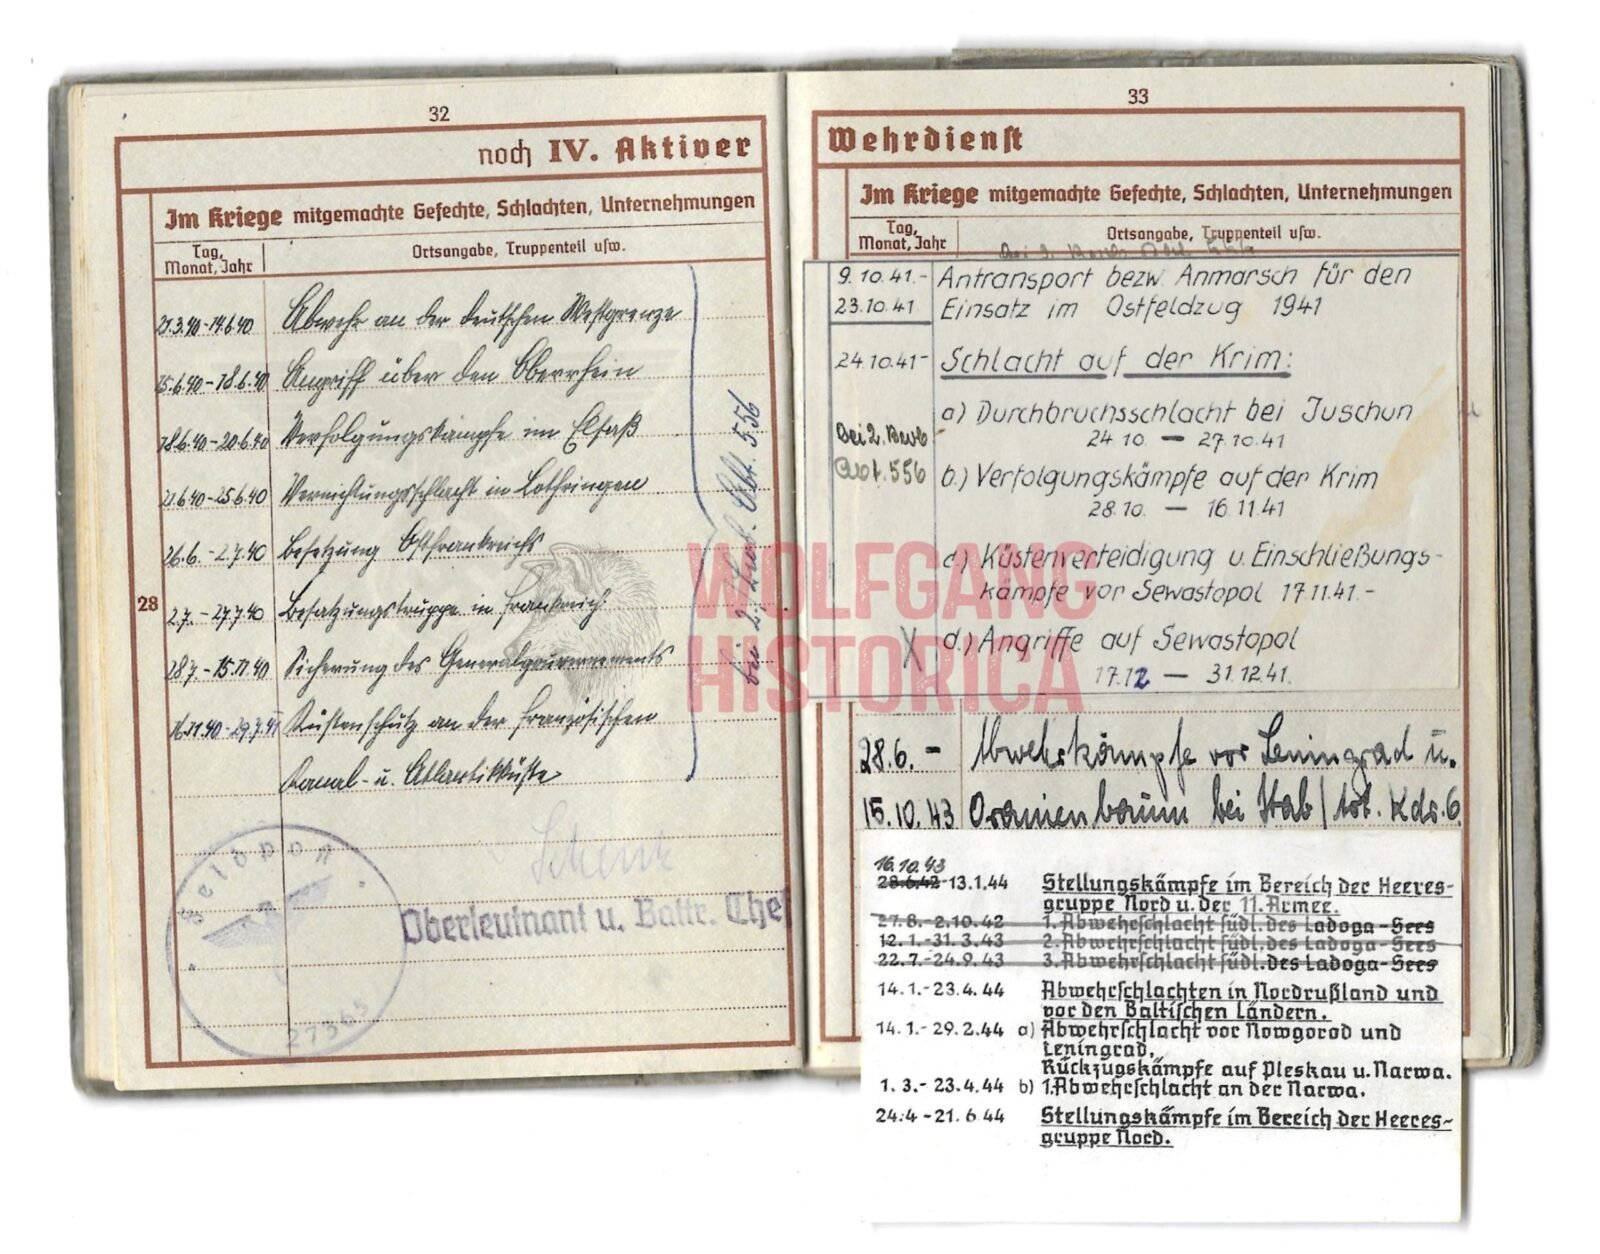 32
noch IV. Aktiver
Im Kriege mitgemachte Gefechte, Schlachten, Unternehmungen
Tag, Monat, Jahr
Ortsangabe, Truppenteil usw.
21.3.40-14.6.40 Abwehr an der deutschen Westgrenze
15.6.40-18.6.40 Angriff über den Oberrhein
18.6.40-20.6.40 Verfolgungskämpfe im Elsaß
21.6.40-25.6.40 Vernichtungsschlacht in Lothringen
26.6.-2.7.40 Besetzung Ostfrankreichs
28
2.7.-27.7.40 Besatzungstruppe in Frankreich
28.7.-15.11.40 Sicherung des Generalgouvernements
16.11.40-29.7.41 Küstenschutz an der französischen
Kanal- u. Atlantikküste
bei 2. Abt. 556
Feldpost
27365
Oberleutnant u. Battr. Chef
33
Wehrdienst
Im Kriege mitgemachte Gefechte, Schlachten, Unternehmungen
Tag, Monat, Jahr
Ortsangabe, Truppenteil usw.
9.10.41.- Antransport bezw. Anmarsch für den
23.10.41 Einsatz im Ostfeldzug 1941
24.10.41- Schlacht auf der Krim:
a) Durchbruchsschlacht bei Juschun
24.10. — 27.10.41
bei 2.
Abt. 556
b.) Verfolgungskämpfe auf der Krim
28.10. — 16.11.41
c.) Küstenverteidigung u. Einschließungs-
kämpfe vor Sewastopol 17.11.41.-
X d.) Angriffe auf Sewastopol
17.12 — 31.12.41.
28.6. - Abwehrkämpfe vor Leningrad u.
15.10.43 Oranienbaum bei Stab/ Kdr. 6
16.10.43
28.6.42-13.1.44 Stellungskämpfe im Bereich der Heeres-
gruppe Nord u. der 11. Armee.
27.8.-2.10.42 1. Abwehrschlacht südl. des Ladoga-Sees
12.1.-31.3.43 2. Abwehrschlacht südl. des Ladoga-Sees
22.7.-24.9.43 3. Abwehrschlacht südl. des Ladoga-Sees
14.1.-23.4.44 Abwehrschlachten in Nordrußland und
vor den Baltischen Ländern.
14.1.-29.2.44 a) Abwehrschlacht vor Nowgorod und
Leningrad,
Rückzugskämpfe auf Pleskau u. Narwa.
1.3.-23.4.44 b) 1. Abwehrschlacht an der Narwa.
24.4-21.6.44 Stellungskämpfe im Bereich der Heeres-
gruppe Nord.
WOLFGANG
HISTORICA